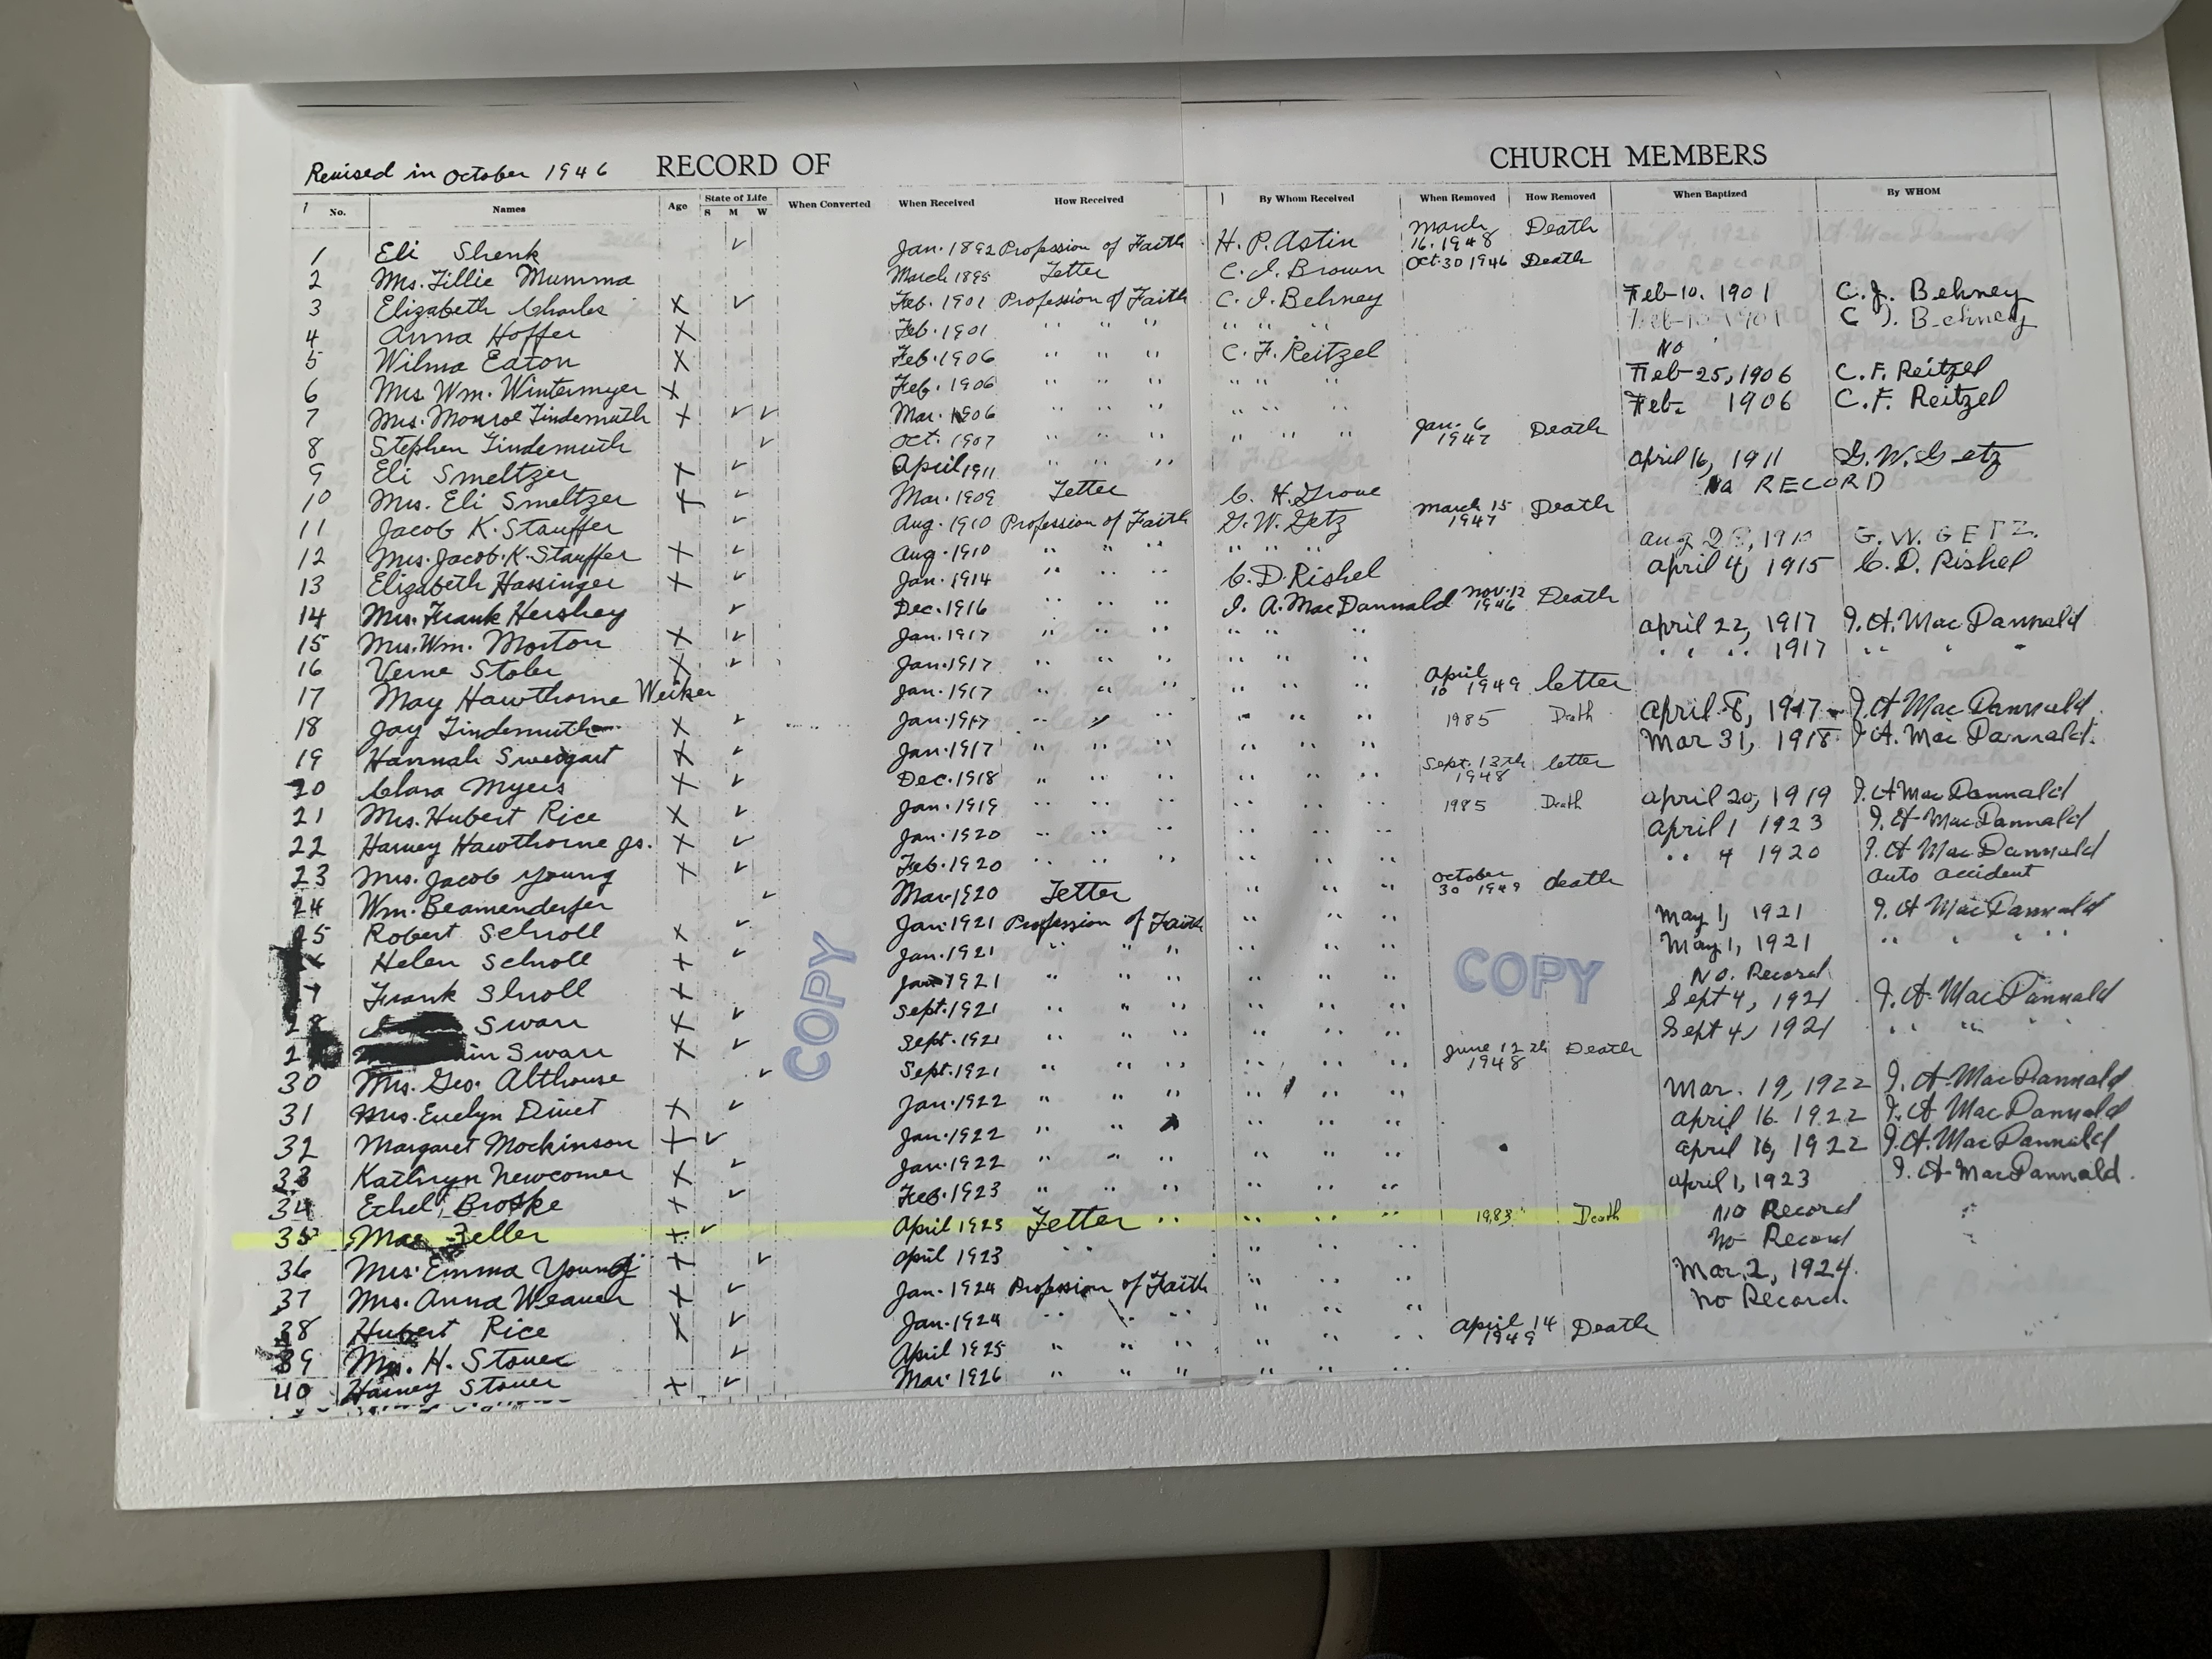 Revised in October 1946 RECORD OF CHURCH MEMBERS
No. Names Age State of Life S M W When Converted When Received How Received By Whom Received When Removed How Removed When Baptized By WHOM
1 Eli Shenk ✓ Jan. 1892 Profession of Faith H. P. Astin March 16. 1948 Death
2 Mrs. Lillie Mumma March 1895 Letter C. I. Brown Oct. 30 1946 Death
3 Elizabeth Charles X ✓ Feb. 1901 Profession of Faith C. I. Behney Feb-10. 1901 C. J. Behney
4 Anna Hoffer X Feb. 1901 " " " " " " 1901 C J. Behney
5 Wilma Eaton X Feb. 1906 " " " C. F. Reitzel No
6 Mrs. Wm. Wintermyer X Feb. 1906 " " " " " " Feb-25, 1906 C. F. Reitzel
7 Mrs. Monroe Lindemuth X ✓ ✓ Mar. 1906 " " " " " " Feb. 1906 C. F. Reitzel
8 Stephen Lindemuth ✓ Oct. 1907 " " " " " " Jan. 6 1947 Death
9 Eli Smeltzer X ✓ April 1911 " " " April 16, 1911 G. W. Getz
10 Mrs. Eli Smeltzer X ✓ Mar. 1909 Letter C. H. Grove No RECORD
11 Jacob K. Stauffer ✓ Aug. 1910 Profession of Faith G. W. Getz March 15 1947 Death
12 Mrs. Jacob K. Stauffer X ✓ Aug. 1910 " " " " " " Aug 28, 1910 G. W. GETZ.
13 Elizabeth Hassinger X ✓ Jan. 1914 " " " C. D. Rishel April 4, 1915 C. D. Rishel
14 Mrs. Frank Hershey ✓ Dec. 1916 " " " I. A. MacDannald Nov. 12 1946 Death
15 Mrs. Wm. Morton X ✓ Jan. 1917 " " " " " " April 22, 1917 I. A. MacDannald
16 Verne Stober X ✓ Jan. 1917 " " " " " " " " 1917 " " "
17 May Hawthorne Weiker Jan. 1917 " " " " " " April 10 1949 letter
18 Jay Lindemuth X ✓ Jan. 1917 " " " " " " 1985 Death April 8, 1917 I. A MacDannald
19 Hannah Sweigart X ✓ Jan. 1917 " " " " " " Mar 31, 1918 I. A. MacDannald.
20 Clara Myers X ✓ Dec. 1918 " " " " " " Sept. 13th 1948 letter
21 Mrs. Hubert Rice X ✓ Jan. 1919 " " " " " " 1985 Death April 20, 1919 I. A MacDannald
22 Harvey Hawthorne Jr. X ✓ Jan. 1920 " " " " " " April 1 1923 I. A. MacDannald
23 Mrs. Jacob Young X ✓ Feb. 1920 " " " " " " " 4 1920 I. A MacDannald
24 Wm. Beamenderfer ✓ Mar. 1920 Letter " " " October 30 1949 death auto accident
25 Robert Schroll X ✓ Jan. 1921 Profession of Faith " " " May 1, 1921 I. A MacDannald
Helen Schroll X ✓ Jan. 1921 " " " " " " May 1, 1921 " " " "
7 Frank Shroll X Jan 1921 " " " " " " No. Record
28 Swarr X ✓ Sept. 1921 " " " " " " Sept 4, 1921 I. A. MacDannald
2 in Swarr X ✓ Sept. 1921 " " " " " " Sept 4, 1921 " " "
30 Mrs. Geo. Althouse ✓ Sept. 1921 " " " " " " June 12th 1948 Death
31 Mrs. Evelyn Divet X ✓ Jan. 1922 " " " " " Mar. 19, 1922 I. A. MacDannald
32 Margaret Mockinson X ✓ Jan. 1922 " " " " " April 16. 1922 I. A MacDannald
33 Kathryn Newcomer X ✓ Jan. 1922 " " " " " " April 16, 1922 I. A. MacDannald
34 Ethel Broske X ✓ Feb. 1923 " " " " " " April 1, 1923 I. A. MacDannald.
35 Mae Zeller X ✓ April 1923 Letter " " " " 1983 Death No Record
36 Mrs. Emma Young X ✓ April 1923 " " " " No Record
37 Mrs. Anna Weaver X ✓ Jan. 1924 Profession of Faith " " Mar. 2, 1924.
38 Hubert Rice X ✓ Jan. 1924 " " " " " " No Record.
39 Mrs. H. Stover ✓ April 1925 " " " " " " April 14 1949 Death
40 Harvey Stover X ✓ Mar. 1926 " " " " " "
COPY
COPY